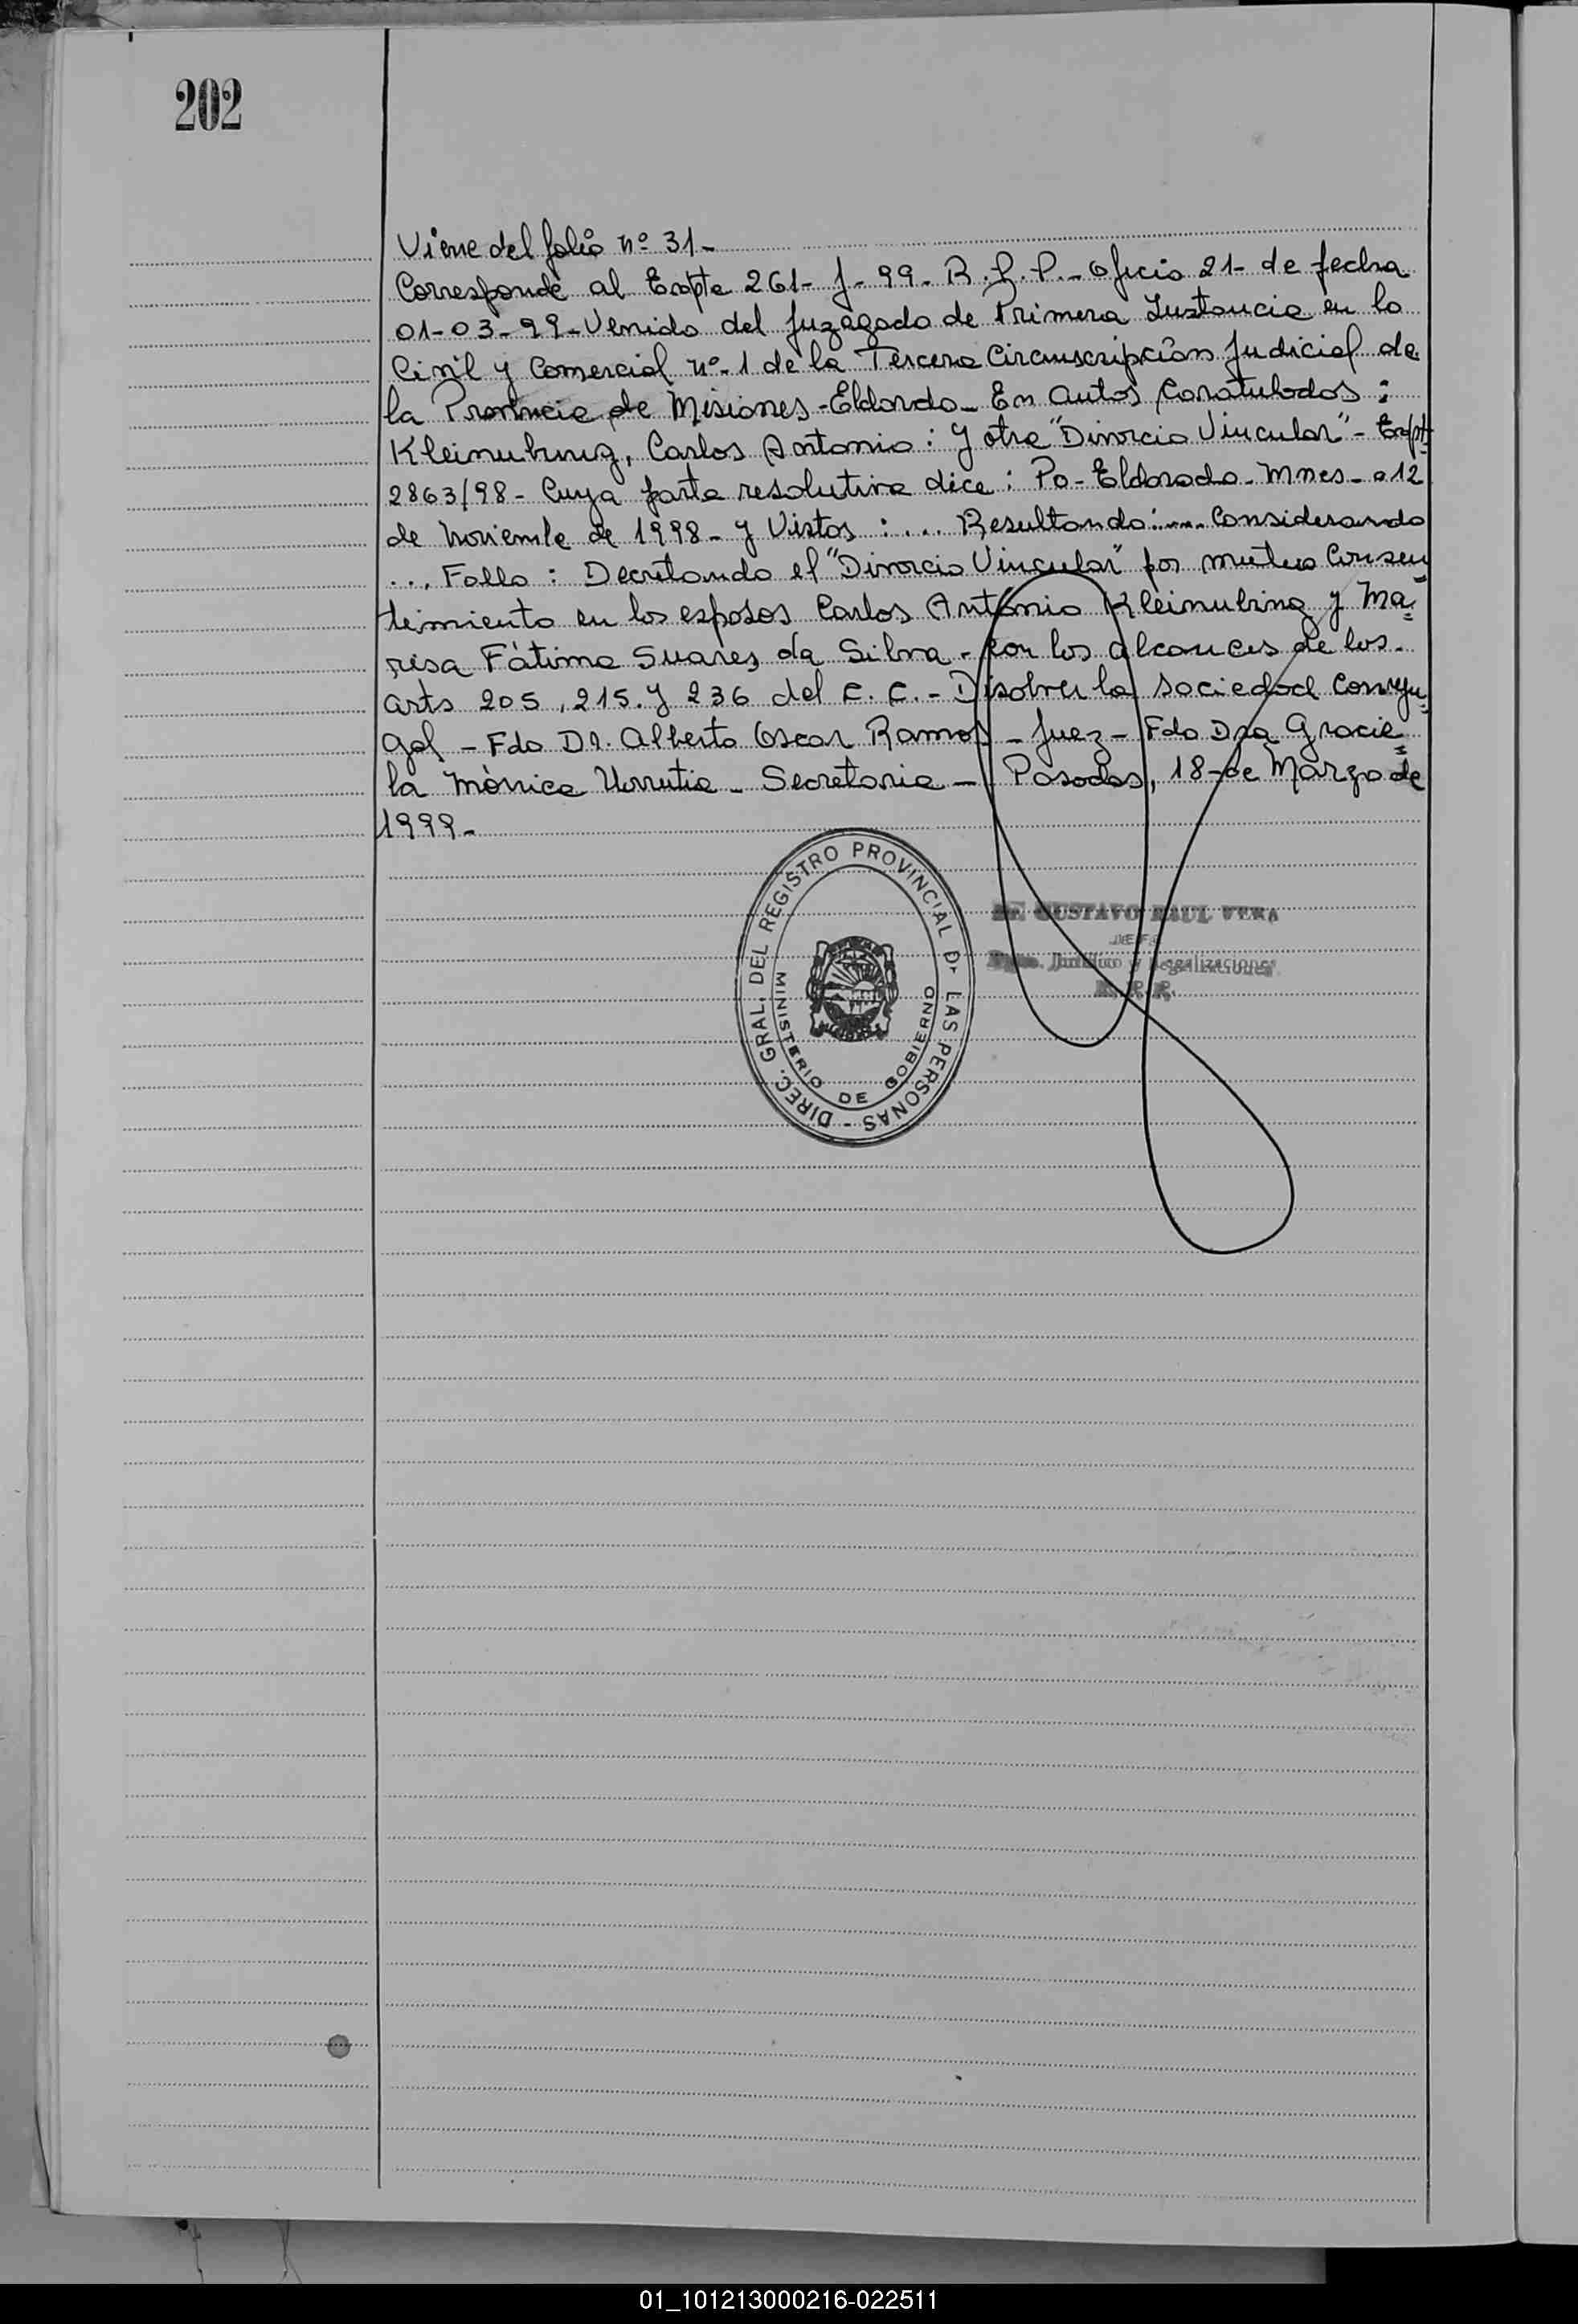 202
Viene del folio nº 31-
Corresponde al Expte 261- J- 99- R.P.P.- Oficio 21- de fecha
01-03-99- Venido del Juzagado de Primera Instancia en lo
Civil y Comercial nº 1 de la Tercera Circunscripción Judicial de
la Provincia de Misiones -Eldorado- En autos Caratulados :
Kleinubing, Carlos Antonio : y otra "Divorcio Vincular" - Expt
2863/98- Cuya parte resolutiva dice : Po- Eldorado- Mnes- a 12
de Noviembre de 1998- y Vistos : ... Resultando : ... Considerando
... Fallo : Decretando el "Divorcio Vincular" por mutuo Consen=
timiento en los esposos Carlos Antonio Kleinubing y Ma=
risa Fátima Suares da Silva - con los alcances de los
arts 205, 215. y 236 del C. C. - Disolver la sociedad Conyu=
gal - Fdo Dr. Alberto Oscar Ramos - Juez - Fdo Dra Gracie=
la Mónica Urrutia - Secretaria - Posadas, 18 de Marzo de
1999-
DIREC. GRAL. DEL REGISTRO PROVINCIAL D. LAS PERSONAS -
MINISTERIO DE GOBIERNO
GUSTAVO RAUL VERA
JEFE
Jurídico y Legalizaciones
R. P. P.
01_101213000216-022511